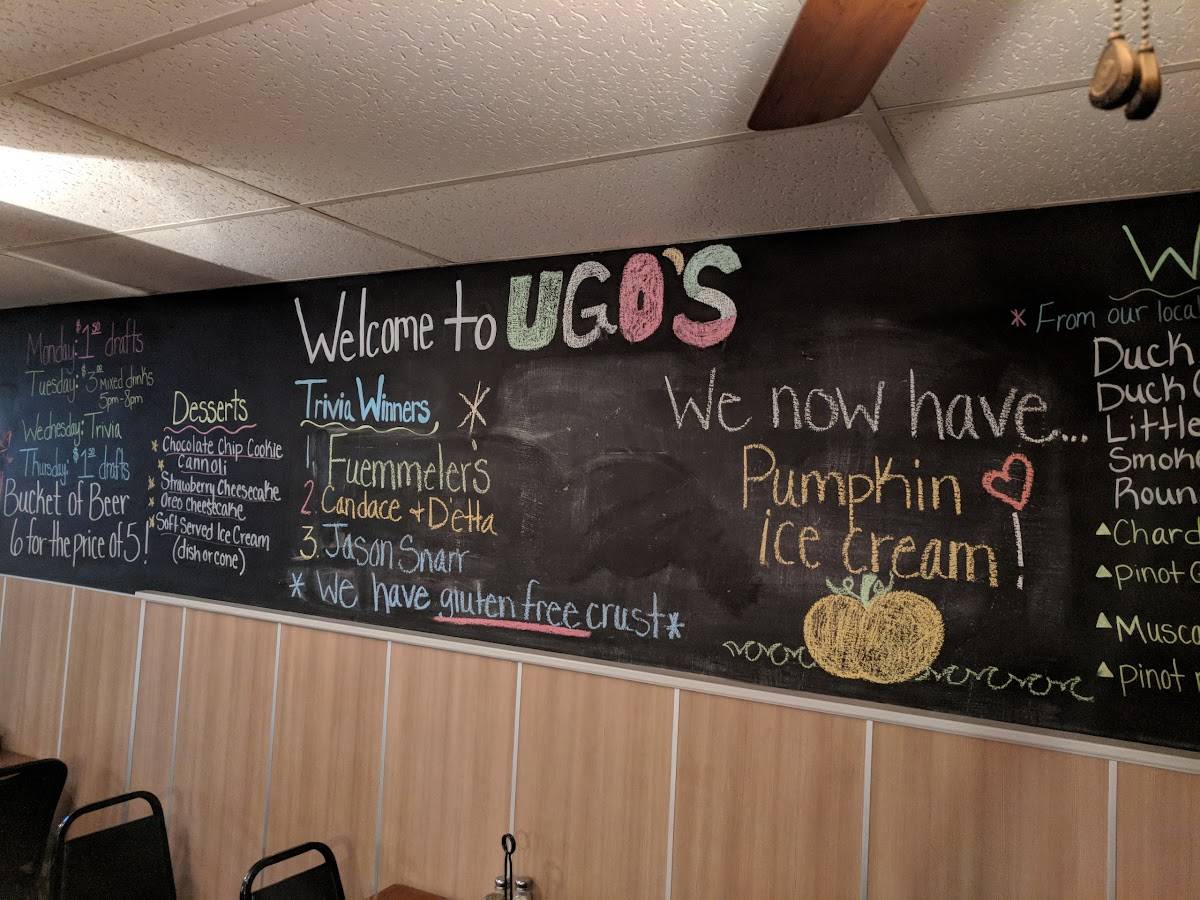 Monday: $1.50 drafts
Tuesday: $3.00 Mixed drinks
5pm-8pm
Wednesday: Trivia
Thursday: $1.50 drafts
Bucket of Beer
6 for the price of 5!
Desserts
* Chocolate Chip Cookie
Cannoli
* Strawberry Cheesecake
* Oreo Cheesecake
* Soft Served Ice Cream
(dish or cone)
Welcome to UGO'S
Trivia Winners
1 Fuemmeler's
2. Candace + D'etta
3. Jason Snarr
* We have gluten free crust *
We now have...
Pumpkin
ice cream!
W
* From our loca
Duck
Duck
Little
Smoke
Roun
Chard
Pinot G
Musca
Pinot